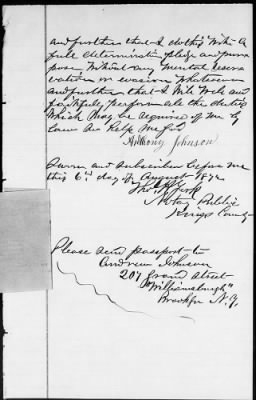 and further that I do this With a
full determination pledge and purpose
pose Without any mental reser
vation or evasion Whatsoever
and further that I Will Well and
faithfully perform all the duties
Which May be required of me by
law So help me God
Anthony Johnson
Sworn and Subscribed before me
this 6th day of August 187
Notary Public
Kings County
Please send passport to
Andrew Johnson
207 Grand Street
"Williamsburgh"
Brooklyn N.Y.